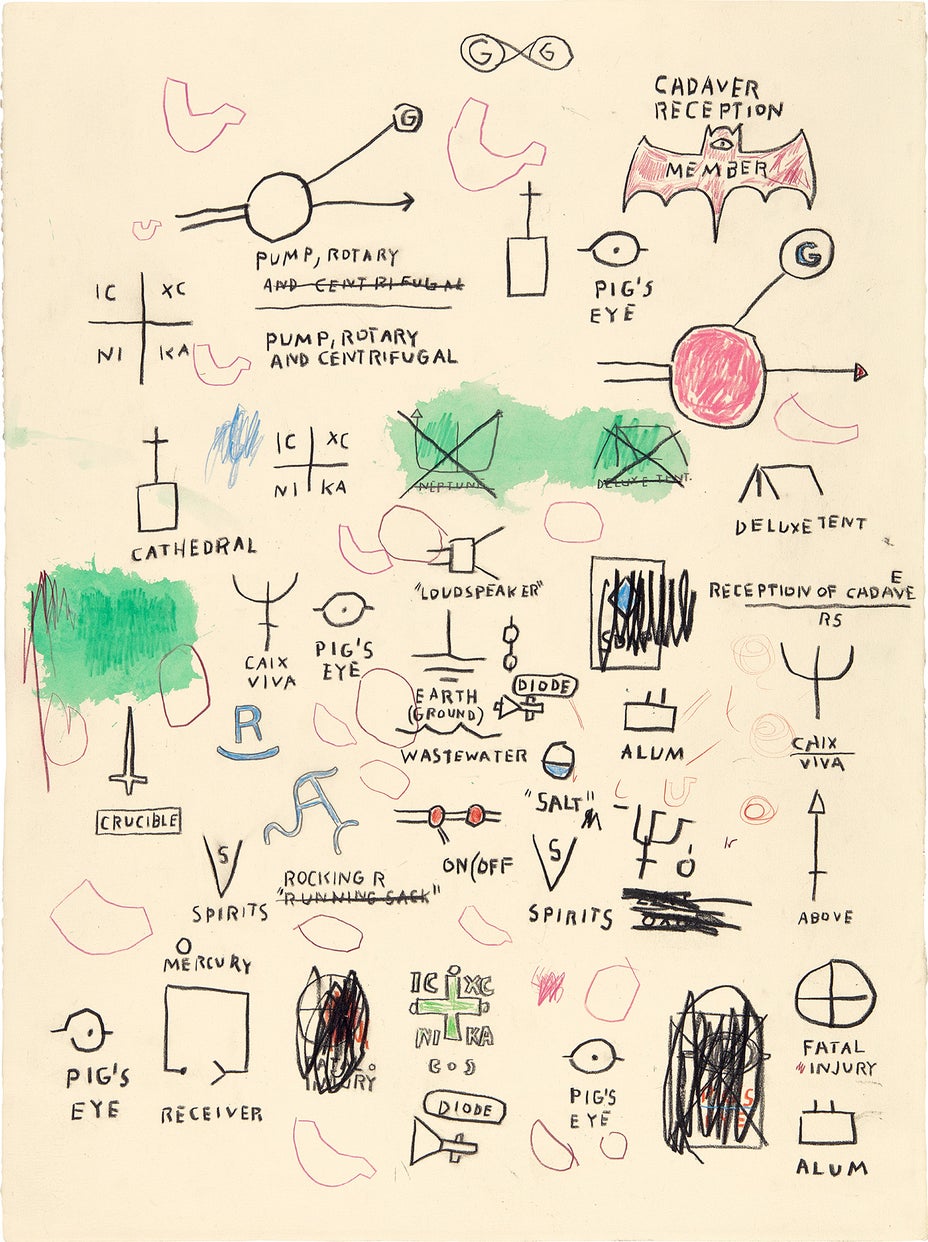 G G
CADAVER
RECEPTION
G
MEMBER
PUMP, ROTARY
AND CENTRIFUGAL
G
PIG'S
EYE
IC XC
NI KA
PUMP, ROTARY
AND CENTRIFUGAL
IC XC
NI KA
NEPTUNE
DELUXE TENT.
DELUXE TENT
CATHEDRAL
"LOUDSPEAKER"
E
RECEPTION OF CADAVE
RS
CAIX
VIVA
PIG'S
EYE
EARTH
(GROUND)
DIODE
R
WASTEWATER
ALUM
CAIX
VIVA
CRUCIBLE
A
"SALT"
S
ON/OFF
S
ROCKING R
"RUNNING SACK"
SPIRITS
SPIRITS
ABOVE
MERCURY
IC XC
NI KA
PIG'S
EYE
RECEIVER
INJURY
PIG'S
EYE
FATAL
INJURY
DIODE
ALUM